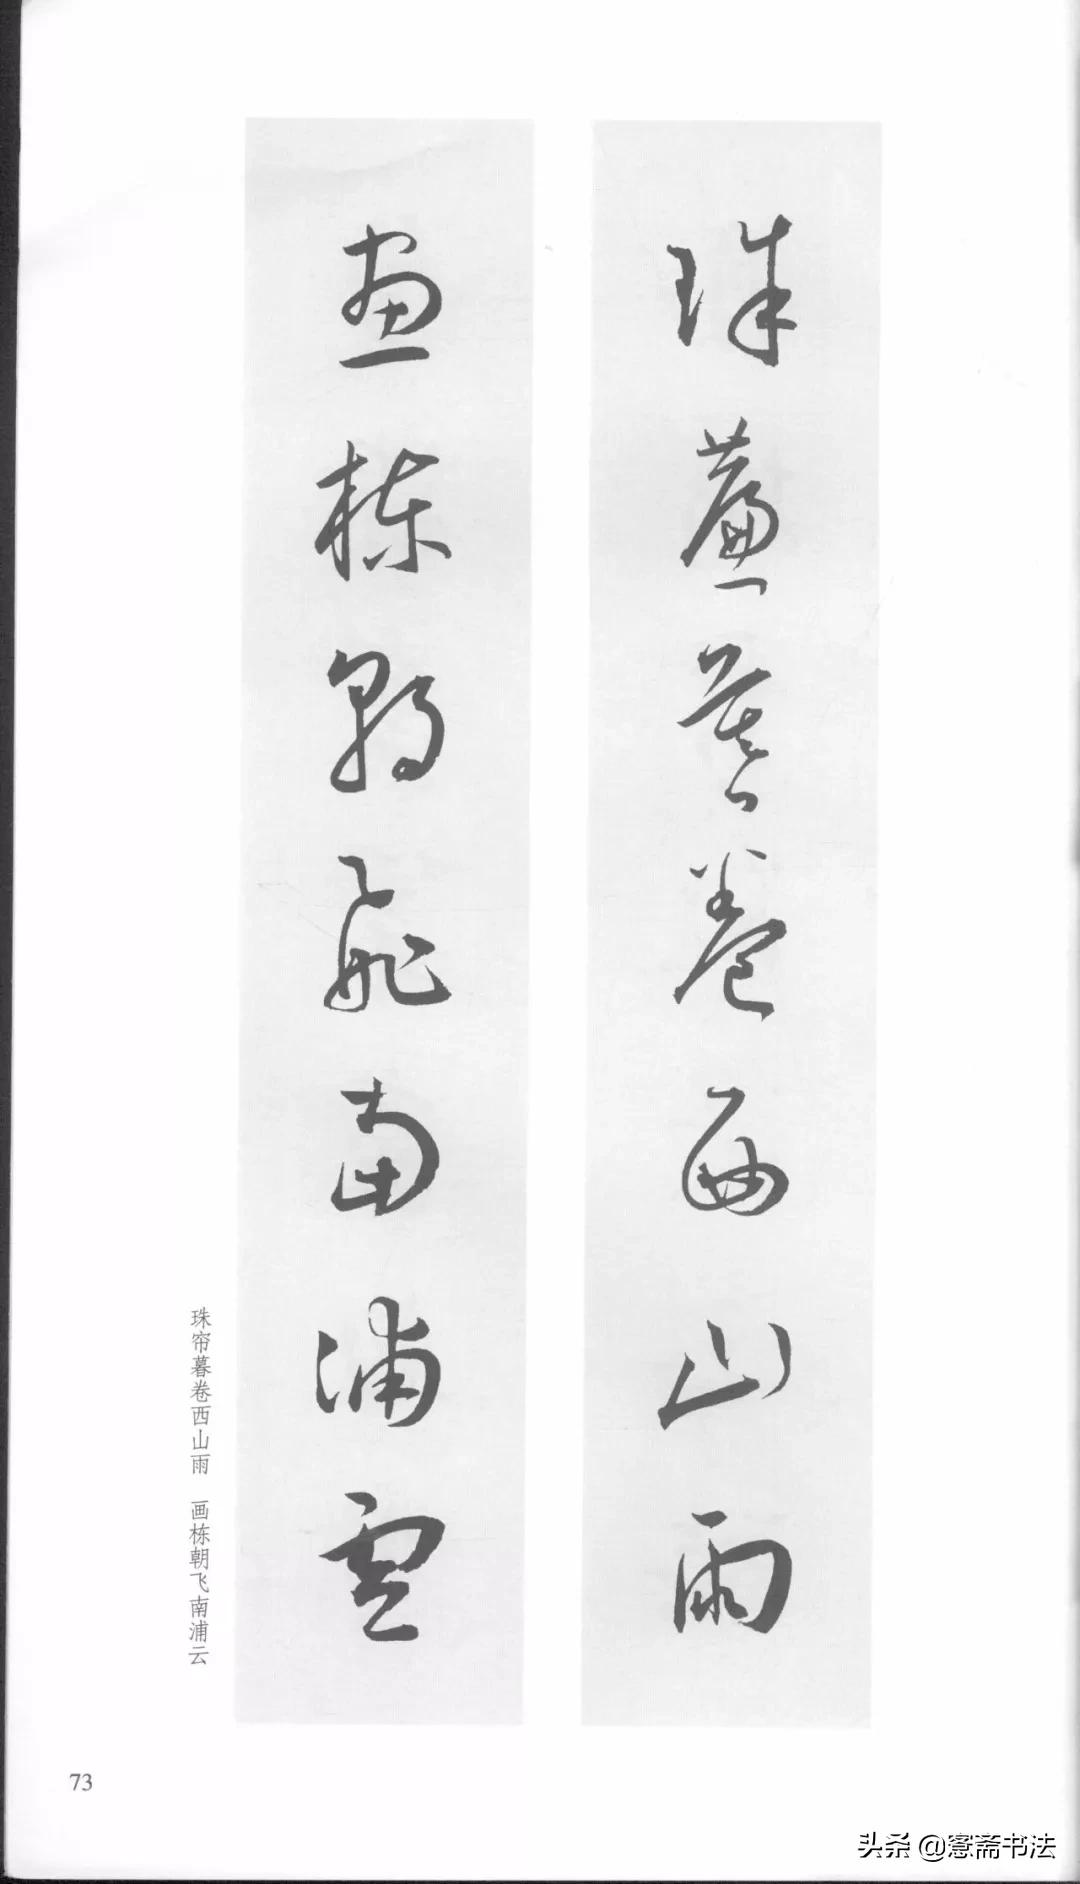 珠簾暮卷西山雨
畫棟朝飛南浦雲
珠帘暮卷西山雨 画栋朝飞南浦云
73
头条 @愙斋书法